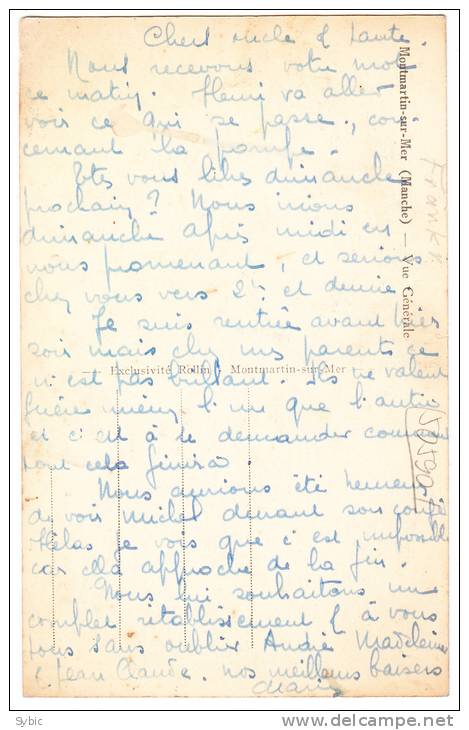 Chers oncle & tante.
Nous recevons votre mot
ce matin. Henri va aller
voir ce qui se passe, con
cernant la pompe.
Etes vous libres dimanche
prochain ? Nous irions
dimanche après midi en
nous promenant, et serions
chez vous vers 2h et demie
Je suis rentrée avant hier
soir mais chez mes parents ce
n'est pas brillant. Ils ne valent
guère mieux l'un que l'autre
et c'est à se demander comment
tout cela finira.
Nous aurions été heureux
de voir Michel durant son congé
Hélas je vois que c'est impossible
car cela approche de la fin.
Nous lui souhaitons un
complet rétablissement & à vous
tous sans oublier André Madeleine
& Jean Claude. nos meilleurs baisers
Montmartin-sur-Mer (Manche) — Vue Générale
— Exclusivité Rollin Montmartin-sur-Mer
50590
Sybic
delcampe.net